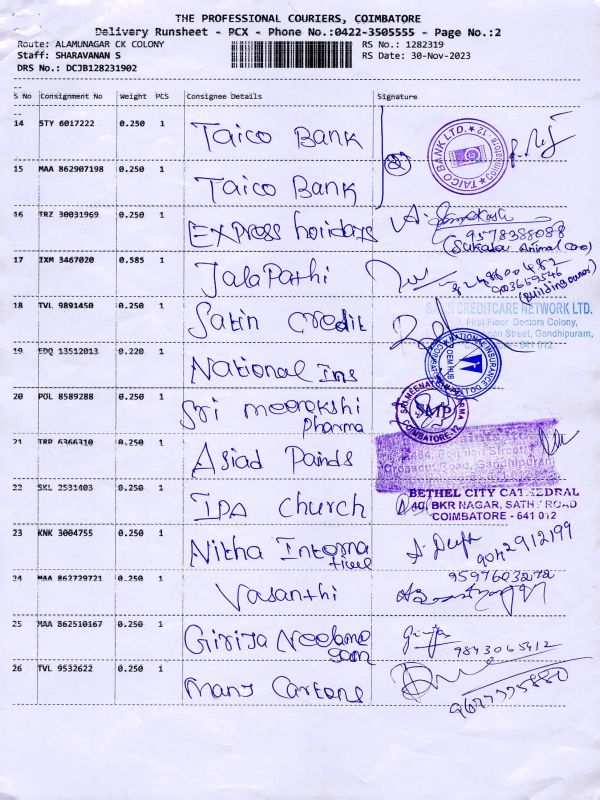 THE PROFESSIONAL COURIERS, COIMBATORE
Delivery Runsheet - PCX - Phone No.:0422-3505555 - Page No.:2
Route: ALAMUNAGAR CK COLONY
RS No.: 1282319
Staff: SHARAVANAN S
RS Date: 30-Nov-2023
DRS No.: DCJB128231902
S No Consignment No Weight PCS Consignee Details Signature
14 STY 6017222 0.250 1 Taico Bank
TAICO BANK LTD.
15 MAA 862907198 0.250 1 Taico Bank
16 TRZ 30031969 0.250 1 Express holidays
9578388088
(Sukata Animal Care)
17 IXM 3467020 0.585 1 Jalapathi
(Building owner)
18 TVL 9891450 0.250 1 Satin Credit
CREDITCARE NETWORK LTD.
First Floor, Doctors Colony,
Street, Gandhipuram,
641 012.
19 EDQ 13512013 0.220 1 National Ins
NATIONAL INSURANCE
20 POL 8589288 0.250 1 Sri meenakshi
pharma
SMP
COIMBATORE-12
21 TRP 6366310 0.250 1 Asiad Paints
22 SKL 2531403 0.250 1 IPA Church
BETHEL CITY CATHEDRAL
40, BKR NAGAR, SATHY ROAD
COIMBATORE - 641 012
23 KNK 3004755 0.250 1 Nitha Interna
tional
9042912199
24 MAA 862729721 0.250 1 Vasanthi
9597603272
25 MAA 862510167 0.250 1 Girija Neelame
gam
Girija
9843065412
26 TVL 9532622 0.250 1 Many Cartons
9677775880